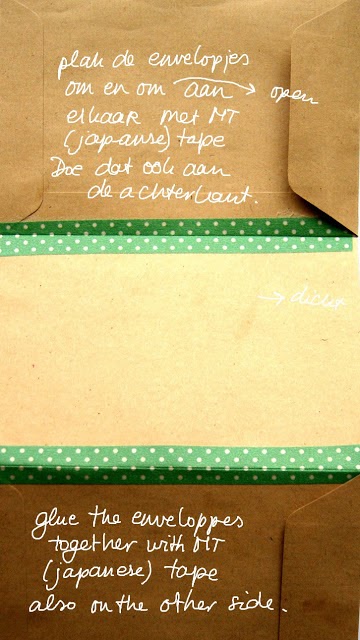 plak de envelopjes
om en om aan → open
elkaar met MT
(japanse) tape
Doe dat ook aan
de achterkant.
→ dicht
glue the enveloppes
together with MT
(japanese) tape
also on the other side.